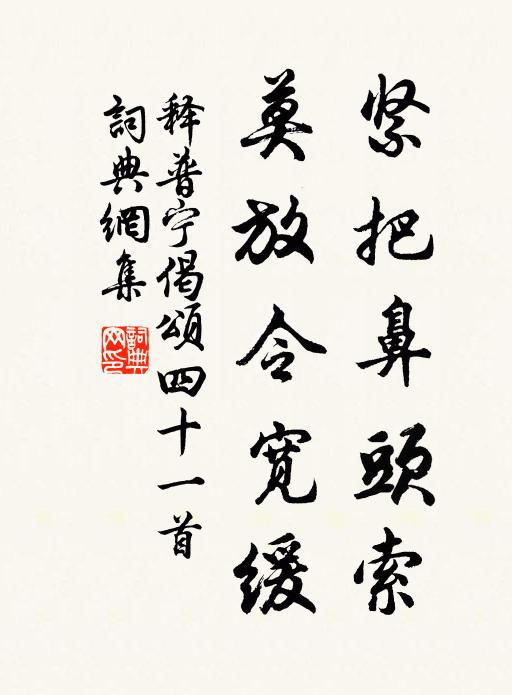 紧把鼻頭索
莫放令寬緩
释普宁偈頌四十一首
詞典網集
詞典網印